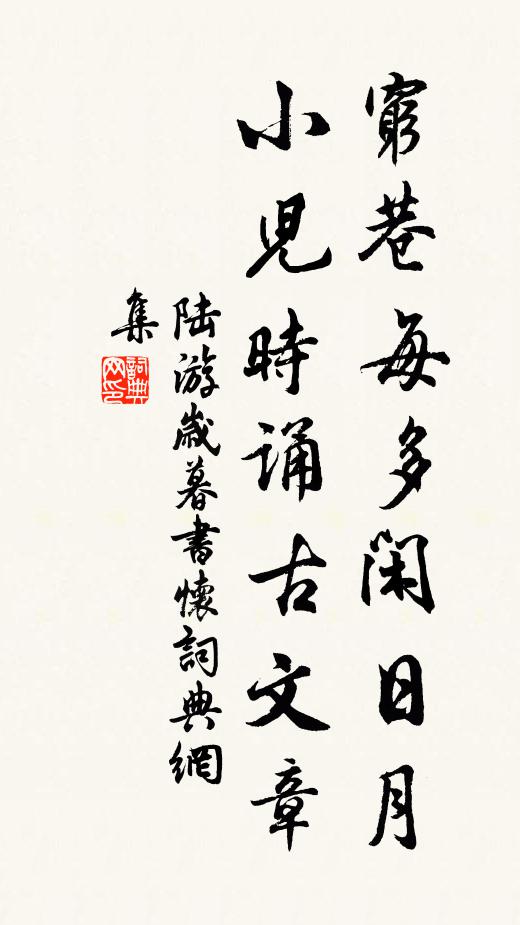 窮巷每多閑日月
小児時誦古文章
陸游歲暮書懷詞典網
集
詞典
网印